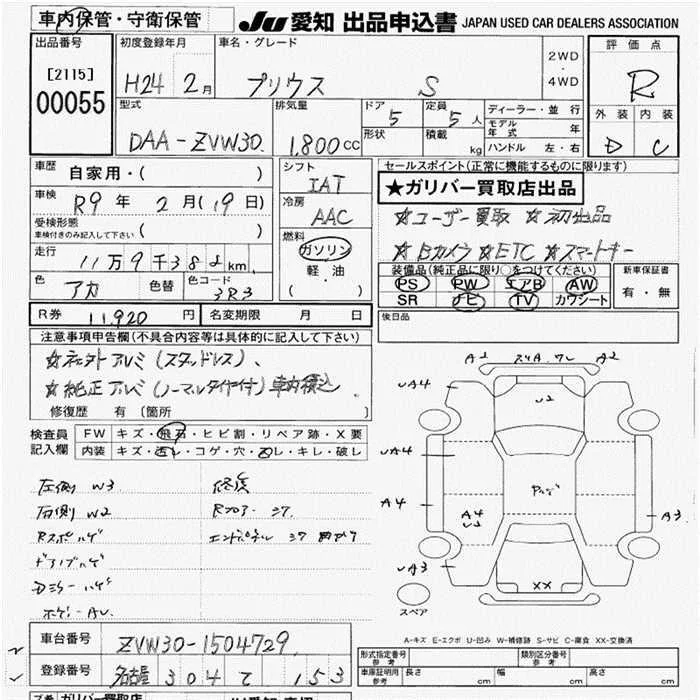 車内保管・守衛保管
JU 愛知 出品申込書 JAPAN USED CAR DEALERS ASSOCIATION
出品番号 初度登録年月 車名・グレード 2WD・4WD 評価点
[2115]
00055 H24 2月 プリウス S R
型式 排気量 ドア 5 定員 5人 ディーラー・並行 外装 内装
DAA-ZVW30 1,800cc 形状 積載 kg モデル年式 年 D C
ハンドル 左・右
車歴 自家用・( ) シフト IAT セールスポイント(正常に機能するものに限ります)
★ガリバー買取店出品
車検 R9年 2月(19日) 冷房 AAC ☆ユーザー買取 ☆初出品
受検形態 ( )
車検付きのみ記入して下さい
燃料 ガソリン ☆Bカメラ ☆ETC ☆スマートキー
走行 11万9千388km 軽・油
( )
装備品(純正品に限り○をつけてください) 新車保証書
色 アカ 色替 色コード 3R3 PS PW エアB AW 有・無
SR ナビ TV カワシート
R券 11,920円 名変期限 月 日 後日品
注意事項申告欄(不具合内容等は具体的に記入して下さい)
☆社外アルミ(スタッドレス)、
☆純正アルミ(ノーマルタイヤ付)車内積込
修復歴 有 〔箇所 〕
検査員記入欄 FW キズ・飛石・ヒビ割・リペア跡・X要
内装 キズ・汚レ・コゲ・穴・スレ・キレ・破レ
左側 W3 修復
右側 W2 Rフロアー ヨワ
Rスポハゲ エンドパネル ヨワ 曲がり
ドアノブハゲ
A1 スリA ワレ A2
UA4 U2 A4
UA4
A4 A4 A3
UA3 XX
スペア
A-キズ E-エクボ U-凹み W-補修跡 S-サビ C-腐食 XX-交換済
車台番号 ZVW30-1504729
登録番号 名古屋 304 て 153
型式指定番号 参考 類別区分番号 参考
車庫証明用 参考 長さ cm 幅 cm 高さ cm
ガリバー買取店